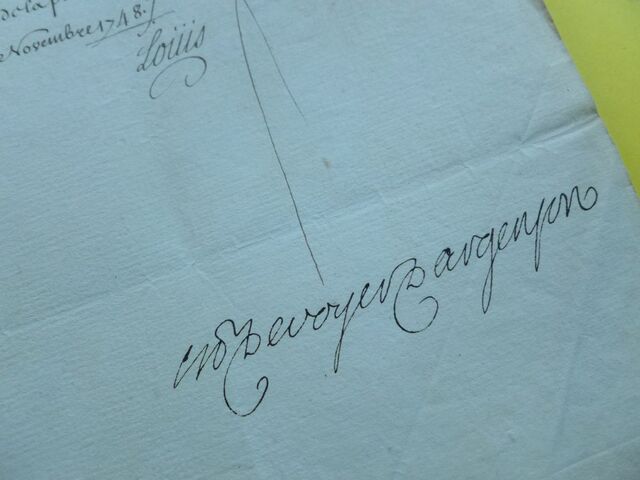 de la p
e Novembre 1748.
Loüis
M P De voyer D argenson